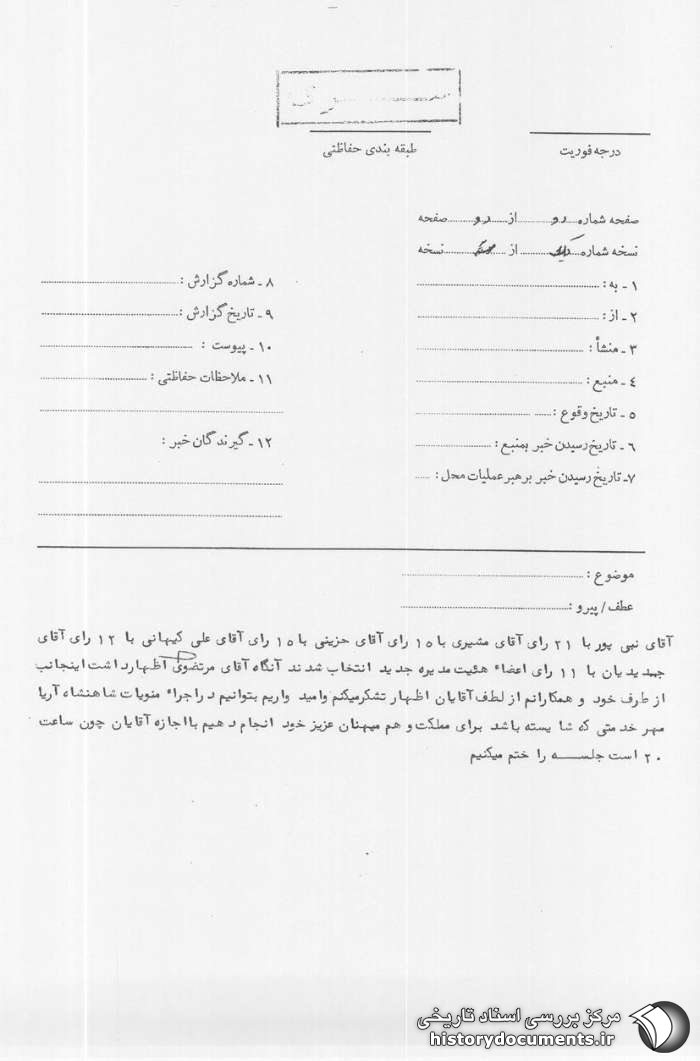 سری
درجه فوریت
طبقه بندی حفاظتی
صفحه شماره دو از دو صفحه
نسخه شماره از نسخه
۱ - به :
۲ - از :
۳ - منشأ :
۴ - منبع :
۵ - تاریخ وقوع :
۶ - تاریخ رسیدن خبر بمنبع :
۷ـ تاریخ رسیدن خبر برهبر عملیات محل :
۸ - شماره گزارش :
۹ - تاریخ گزارش :
۱۰ - پیوست :
۱۱ - ملاحظات حفاظتی :
۱۲ - گیرندگان خبر :
موضوع :
عطف / پیرو :
آقای نبی پور با ۲۱ رای آقای مشیری با ۱۵ رای آقای حزینی با ۱۵ رای آقای علی کیهانی با ۱۲ رای آقای
جمدیدیان با ۱۱ رای اعضاء هئیت مدیره جدید انتخاب شدند آنگاه آقای مرتضوی اظهار داشت اینجانب
از طرف خود و همکارانم از لطف آقایان اظهار تشکر میکنم و امید واریم بتوانیم در اجراء منویات شاهنشاه آریا
مهر خدمتی که شایسته باشد برای مملکت و هم میهنان عزیز خود انجام دهیم با اجازه آقایان چون ساعت
۲۰ است جلسه را ختم میکنیم
مرکز بررسی اسناد تاریخی
historydocuments.ir